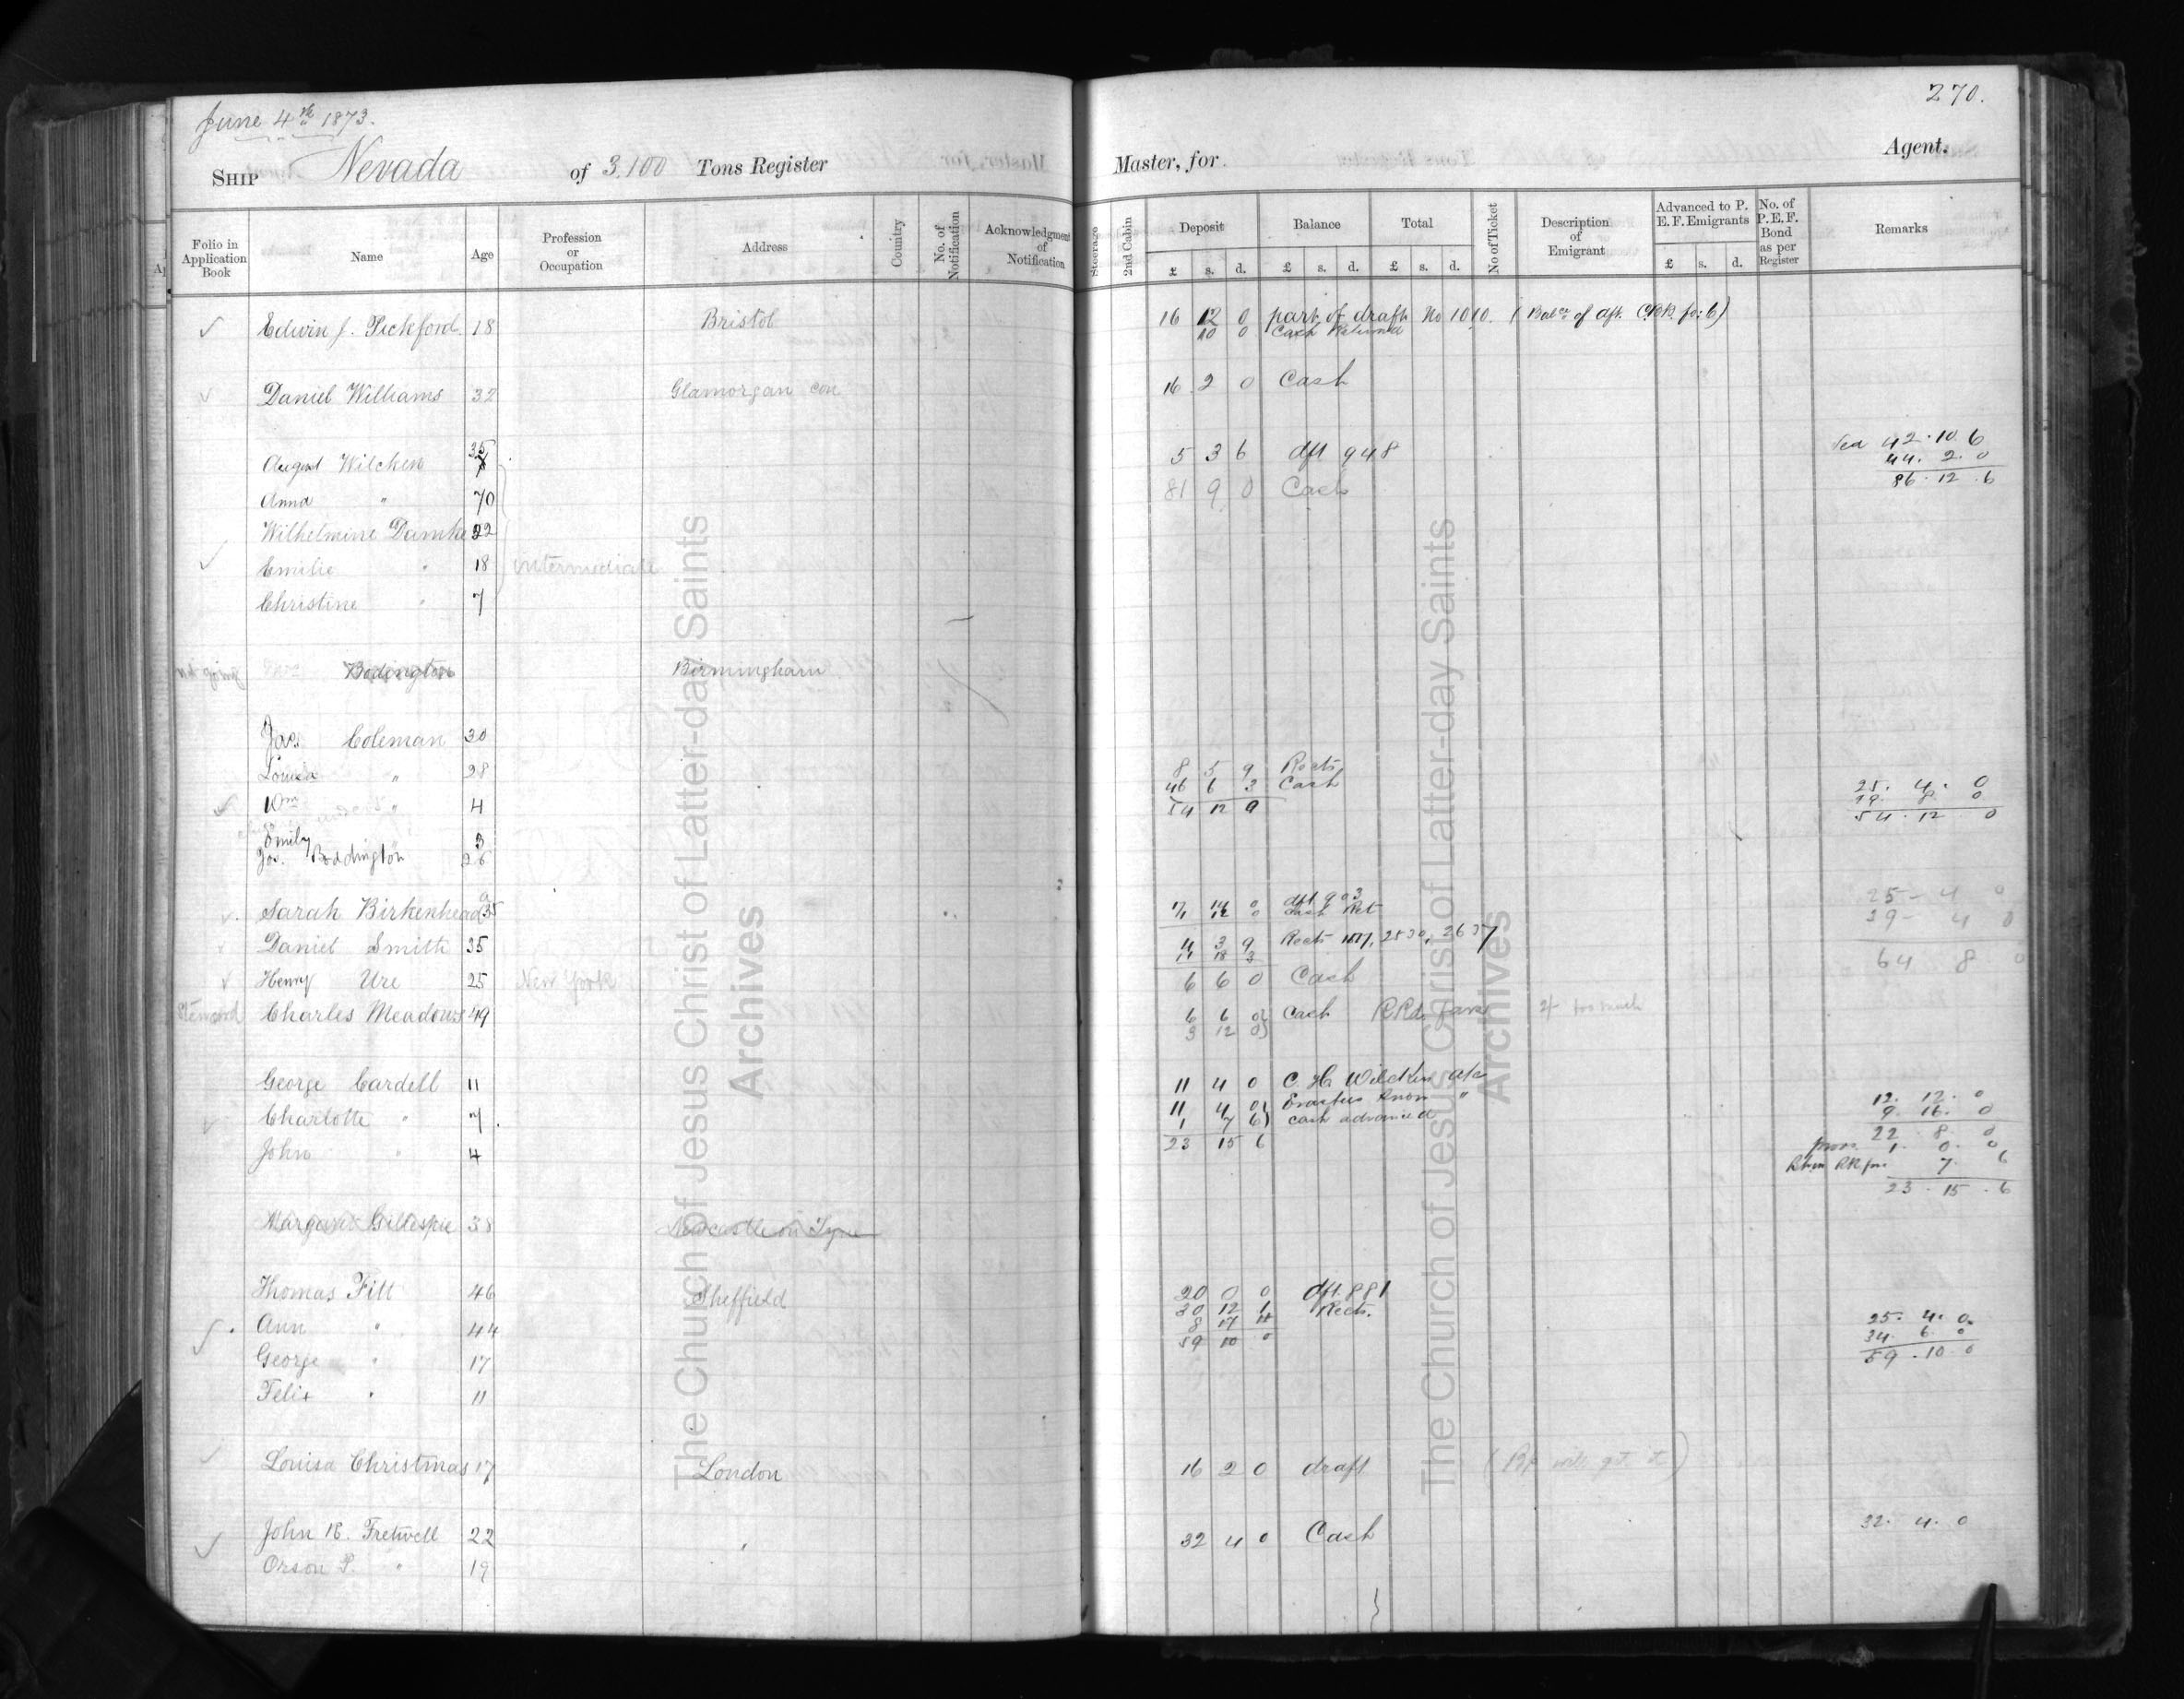 June 4th 1873.
270.
Ship Nevada of 3.100 Tons Register
Master, for
Agent.
Folio in Application Book
Name
Age
Profession or Occupation
Address
Country
No. of Notification
Acknowledgment of Notification
Steerage
2nd Cabin
Deposit
Balance
Total
No of Ticket
Description of Emigrant
Advanced to P. E. F. Emigrants
No. of P. E. F. Bond as per Register
Remarks
£ s. d. £ s. d. £ s. d. £ s. d.
Edwin J. Pickford 18 Bristol 16 12 0 part of draft No 1010.
10 0 Cash Returned
Daniel Williams 32 Glamorgan con 16 2 0 Cash
August Wilcken 35 5 3 6 dft 948 42.10.6
44.2.0
Anna " 70 81 9 0 Cash 86.12.6
Wilhelmine Damke 22
Emilie " 18 intermediate
Christine " 7
not going Bodington Birmingham
Jas Coleman 30
Louisa " 28 8 5 9 Rects
46 6 3 Cash 25. 4. 0
Wm " 4 54 12 0 29. 8. 0
54.12 0
Emily 3
Jos. Boddington 26
Sarah Birkenhead 35 17 14 0 dft 903 25 - 4 0
12 0 Cash Ret 39 - 4 0
Daniel Smith 35 4 3 9 Rects 2530, 2637
11 18 3 64 8 0
Henry Ure 25 New York 6 6 0 Cash
Charles Meadows 49 6 6 0 Cash 2/- too much
3 12 0
George Cardell 11 11 4 0 C. H. Wilcken a/c
Charlotte " 7. 11 4 0 Erastus Snow " 12. 12. 0
1 7 6 cash advanced 9. 16. 0
23 15 6 22 8 0
John " 4 1. 0. 0
7. 6
23.15.6
Margaret Gillespie 38 Newcastle on Tyne
Thomas Fitt 46 Sheffield 20 0 0 dft. 881
30 12 1 Rects.
Ann " 44 8 17 11 25. 4. 0
59 10 0 34. 6. 0
George " 17 59.10.0
Felix " 11
Louisa Christmas 17 London 16 2 0 draft (Bp will get it)
John E. Fretwell 22 32 4 0 Cash 32. 4. 0
Orson P. " 19
The Church of Jesus Christ of Latter-day Saints
Archives
The Church of Jesus Christ of Latter-day Saints
Archives